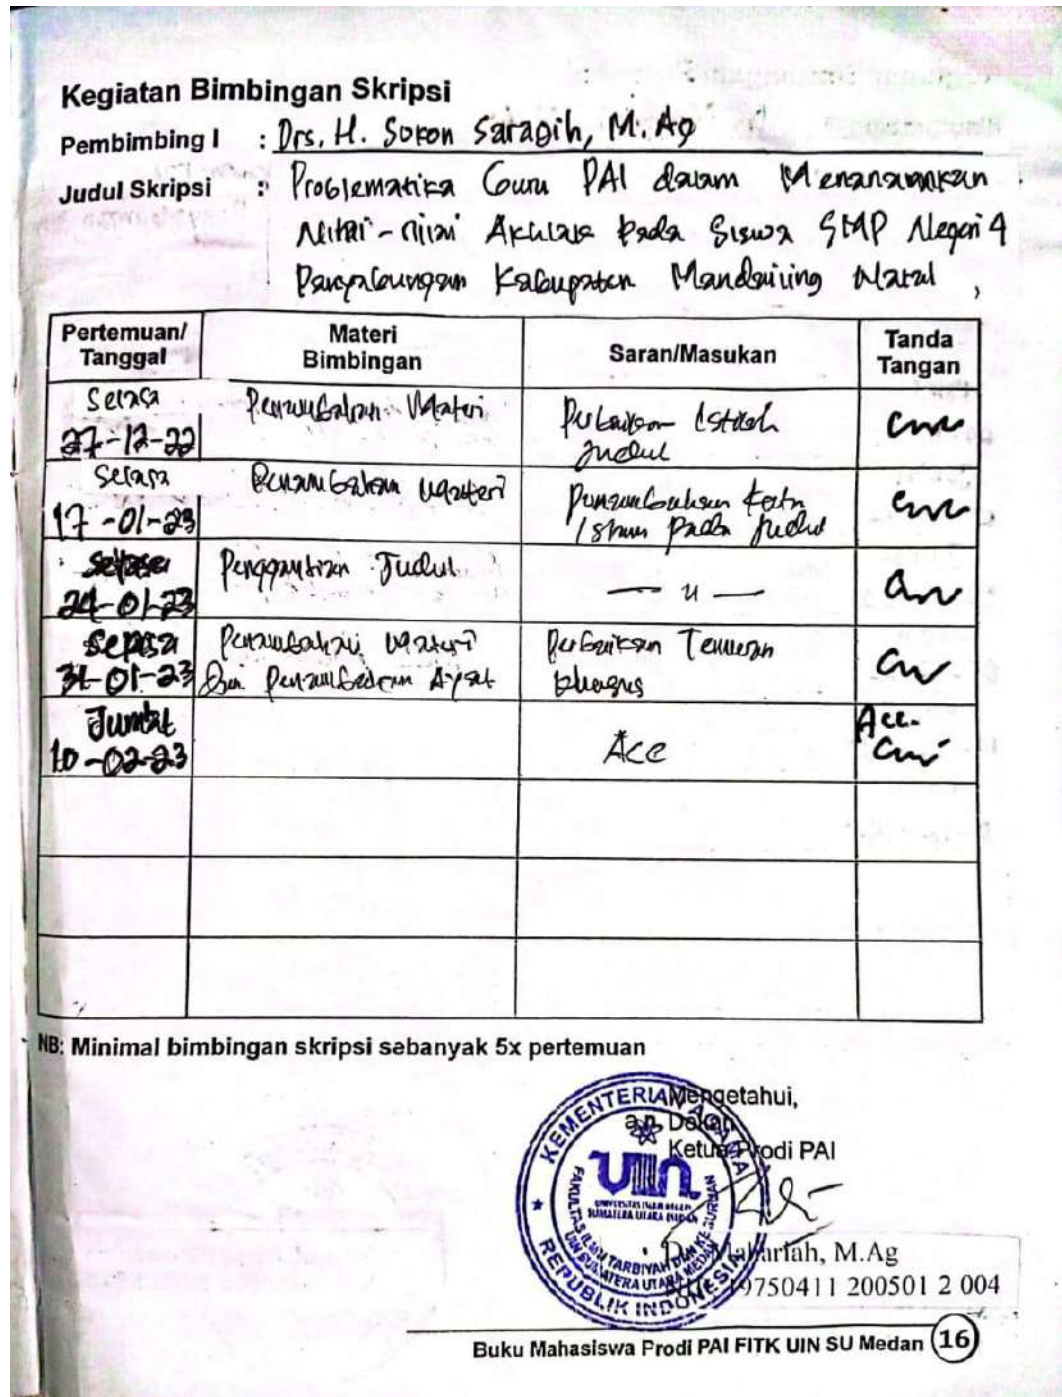 Kegiatan Bimbingan Skripsi
Pembimbing I : Drs. H. Sokon Saragih, M. Ag
Judul Skripsi : Problematika Guru PAI dalam Menanamkan
Nilai-nilai Akhlak Pada Siswa SMP Negeri 4
Panyabungan Kabupaten Mandailing Natal,
Pertemuan/ Tanggal
Materi Bimbingan
Saran/Masukan
Tanda Tangan
Selasa
27-12-22
Penambahan Materi
Perbaikan Istilah
Judul
Selasa
17-01-23
Penambahan Materi
Penambahan Kata
Islam pada Judul
Selasa
24-01-23
Penggantian Judul
— u —
Selasa
31-01-23
Penambahan Materi
Dan Penambahan Ayat
Perbaikan Temuan
Khusus
Jumat
10-02-23
Acc
Acc.
NB: Minimal bimbingan skripsi sebanyak 5x pertemuan
Mengetahui,
a.n Dekan
Ketua Prodi PAI
KEMENTERIAN AGAMA
REPUBLIK INDONESIA
UIN
UNIVERSITAS ISLAM NEGERI
SUMATERA UTARA MEDAN
FAKULTAS ILMU TARBIYAH DAN KEGURUAN
UIN SUMATERA UTARA MEDAN
Mahariah, M.Ag
19750411 200501 2 004
Buku Mahasiswa Prodi PAI FITK UIN SU Medan 16